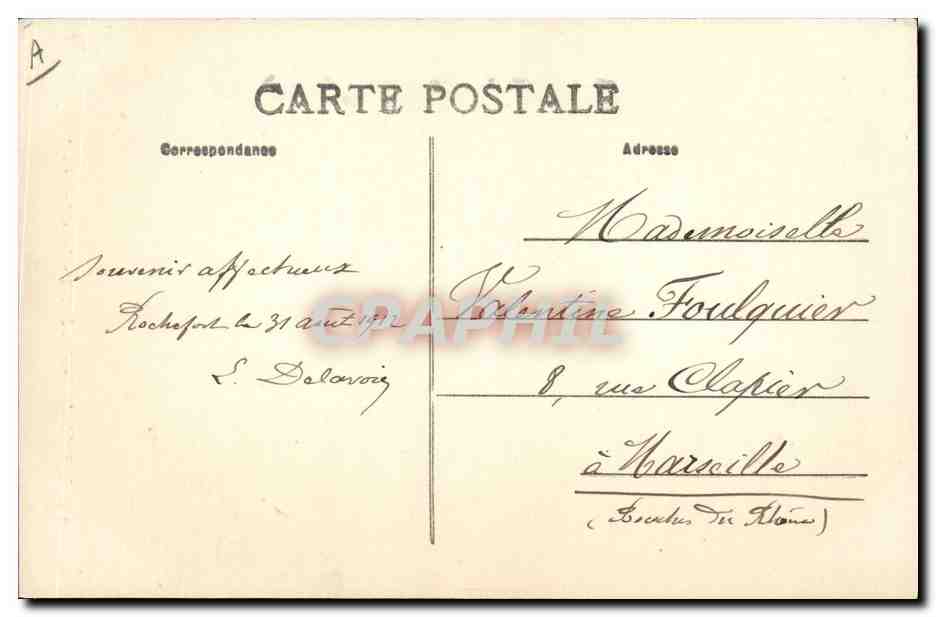 A
CARTE POSTALE
Correspondance
Adresse
Souvenir affectueux
Rochefort le 31 août 1912
L. Delavoie
Mademoiselle
Valentine Foulquier
8, rue Clapier
à Marseille
(Bouches du Rhône)
CPAPHIL